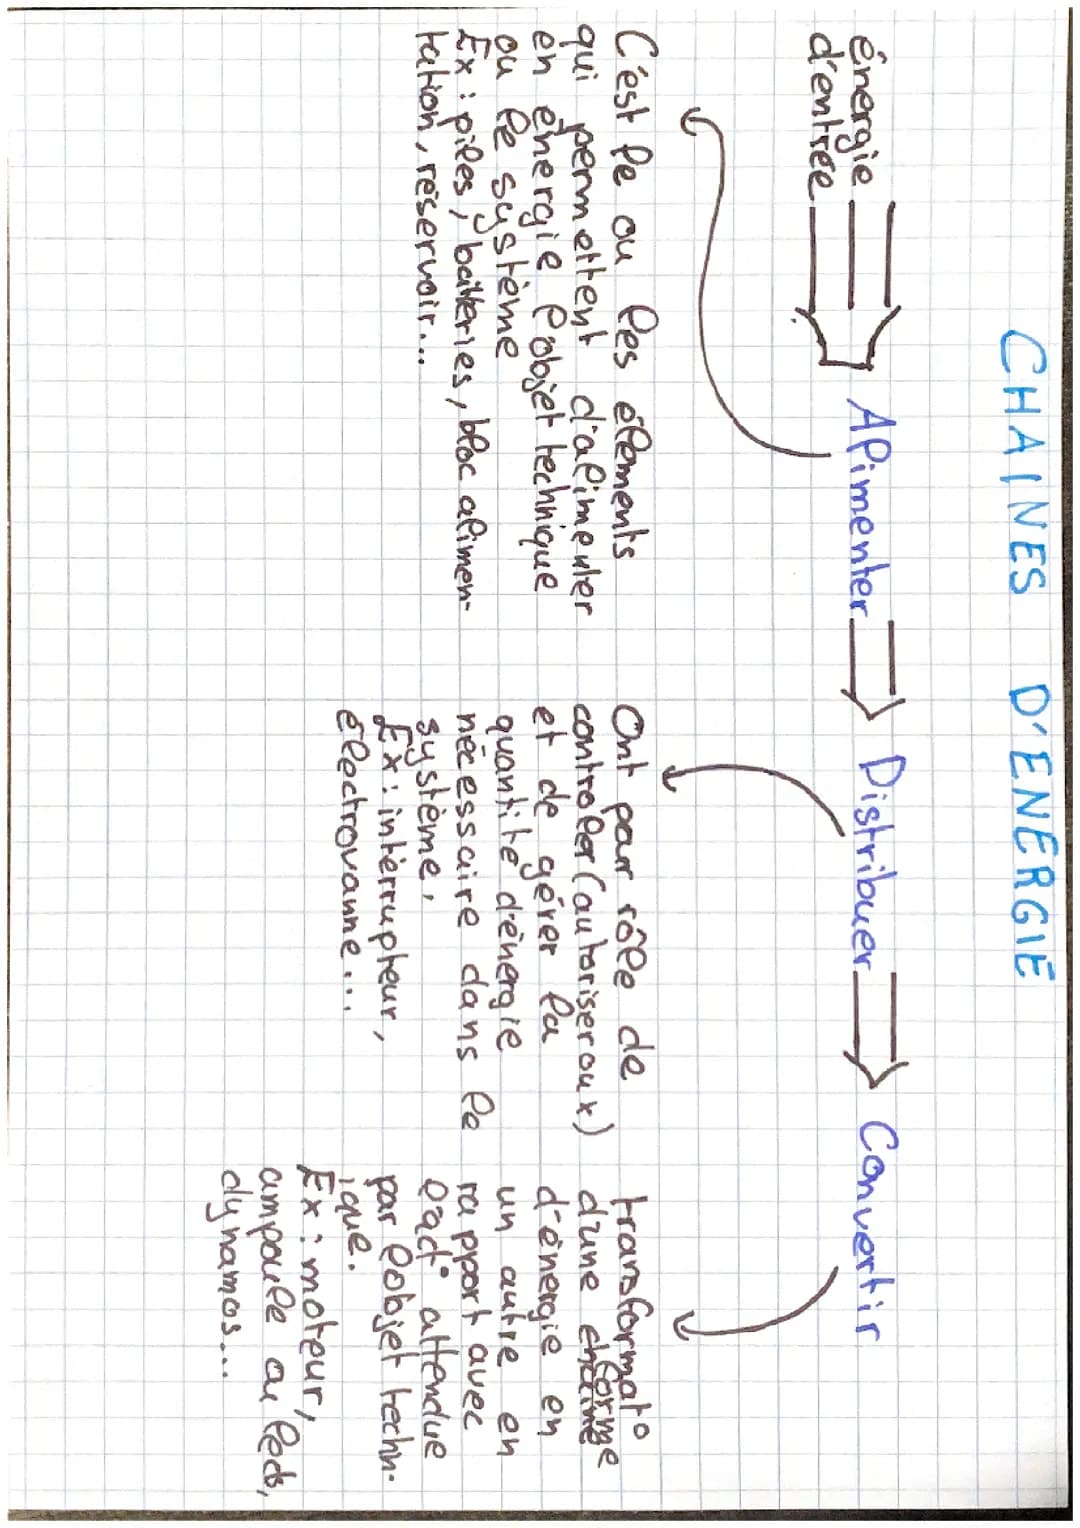 CHAINES D'ENERGIE
énergie
d'entrée
Alimenter
Distribuer
Convertir
C'est le ou les éléments
qui permettent d'alimenter
en énergie l'objet technique
ou le système
Ex : piles, batteries, bloc alimen-
tation, réservoir...
Ont pour rôle de
controler (autoriser ou x)
et de gérer la
quantité d'énergie
nécessaire dans le
système.
Ex : intérrupteur,
électrovanne...
transformat°
d'une forme
d'énergie en
un autre en
rapport avec
l'act° attendue
par l'objet techn-
ique.
Ex : moteur,
ampoule ou leds,
dynamos...